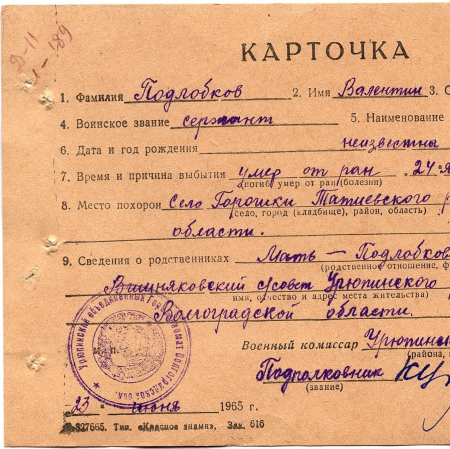 Д-11
1-189
КАРТОЧКА
1. Фамилия Подлобков 2. Имя Валентин 3. О
4. Воинское звание сержант 5. Наименование
6. Дата и год рождения неизвестны
7. Время и причина выбытия умер от ран 24 я
(погиб, умер от ран, болезни)
8. Место похорон Село Горошки Татиевского р
(село, город (кладбище), район, область)
области.
9. Сведения о родственниках Мать — Подлобков
(родственное отношение, ф
Вишняковский с/совет Урюпинского
ими, отчество и адрес места жительства)
Волгоградской области.
Военный комиссар Урюпинс
(района, г
Подполковник
(звание)
23 июня 1965 г.
№ 327665. Тип. «Красное знамя». Зак. 616